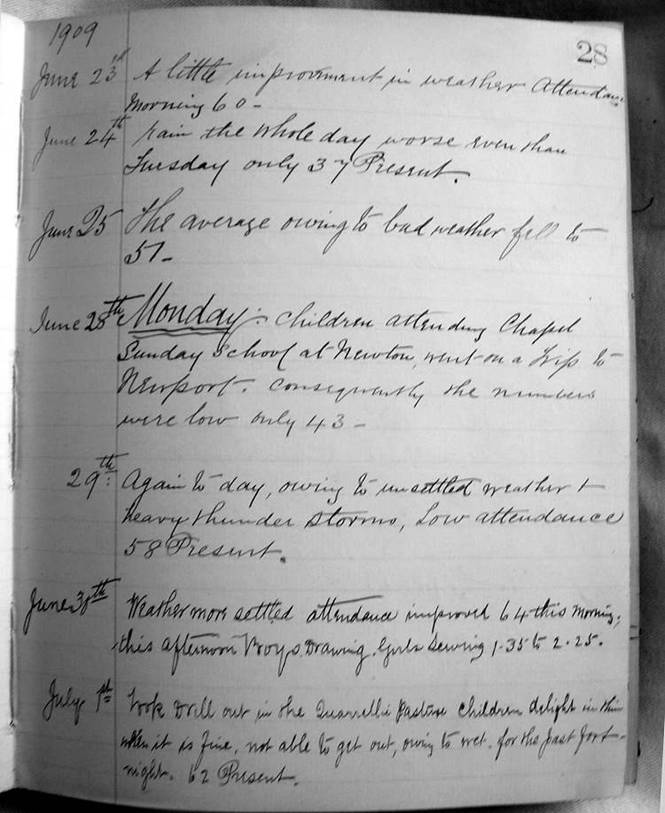 1909
28
June 23rd A little improvement in weather Attendance
Morning 60 -
June 24th rain the whole day worse even than
Tuesday only 37 Present.
June 25 The average owing to bad weather fell to
51 -
June 28th Monday: Children attending Chapel
Sunday School at Newton, went on a trip to
Newport. Consequently the numbers
were low only 43 -
29th: Again to day, owing to unsettled weather +
heavy thunder storms, Low attendance
58 Present.
June 30th Weather more settled attendance improved 64 this morning;
this afternoon Boys Drawing. Girls Sewing 1.35 to 2.25.
July 1st Took Drill out in the pasture Children delight in this
when it is fine, not able to get out, owing to wet. for the past fort-
night. 62 Present.